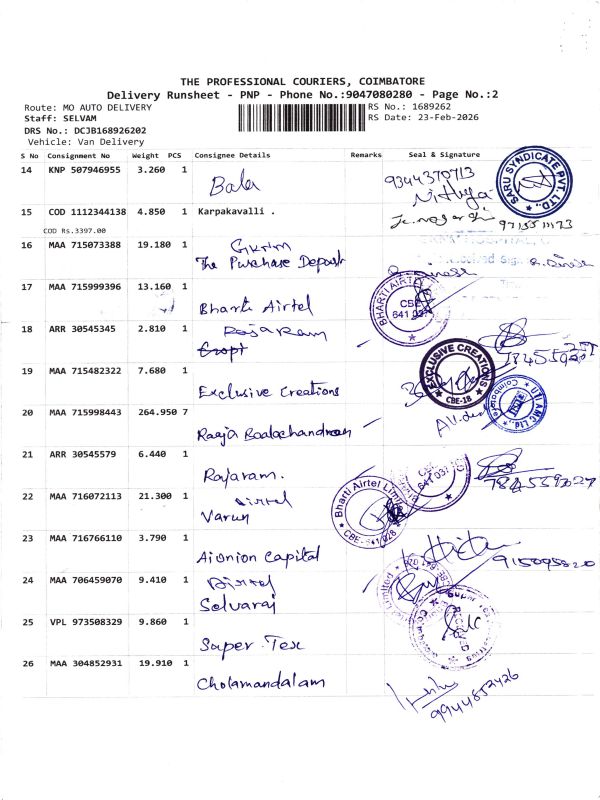 THE PROFESSIONAL COURIERS, COIMBATORE
Delivery Runsheet - PNP - Phone No.:9047080280 - Page No.:2
Route: MO AUTO DELIVERY RS No.: 1689262
Staff: SELVAM RS Date: 23-Feb-2026
DRS No.: DCJB168926202
Vehicle: Van Delivery
S No Consignment No Weight PCS Consignee Details Remarks Seal & Signature
14 KNP 507946955 3.260 1 Bala 9344370713 Nithya SARU SYNDICATE PVT. LTD.,
15 COD 1112344138 4.850 1 Karpakavalli .
COD Rs.3397.00
16 MAA 715073388 19.180 1 The Purchase Depart
17 MAA 715999396 13.160 1 Bharti Airtel BHARTI AIRTEL CBE 641 037
18 ARR 30545345 2.810 1 Rajaram
19 MAA 715482322 7.680 1 Exclusive Creations EXCLUSIVE CREATIONS CBE-18
20 MAA 715998443 264.950 7 Raaja Baalachandran UTI AMC Ltd., Coimbatore
21 ARR 30545579 6.440 1 Rajaram. CBE 641 037
22 MAA 716072113 21.300 1 Airtel Varun Bharti Airtel Limited CBE-641 028
23 MAA 716766110 3.790 1 Aionion Capital
24 MAA 706459070 9.410 1 Airtel Selvaraj
25 VPL 973508329 9.860 1 Super Tex Super Tex RECEIVED
26 MAA 304852931 19.910 1 Cholamandalam 9944852426